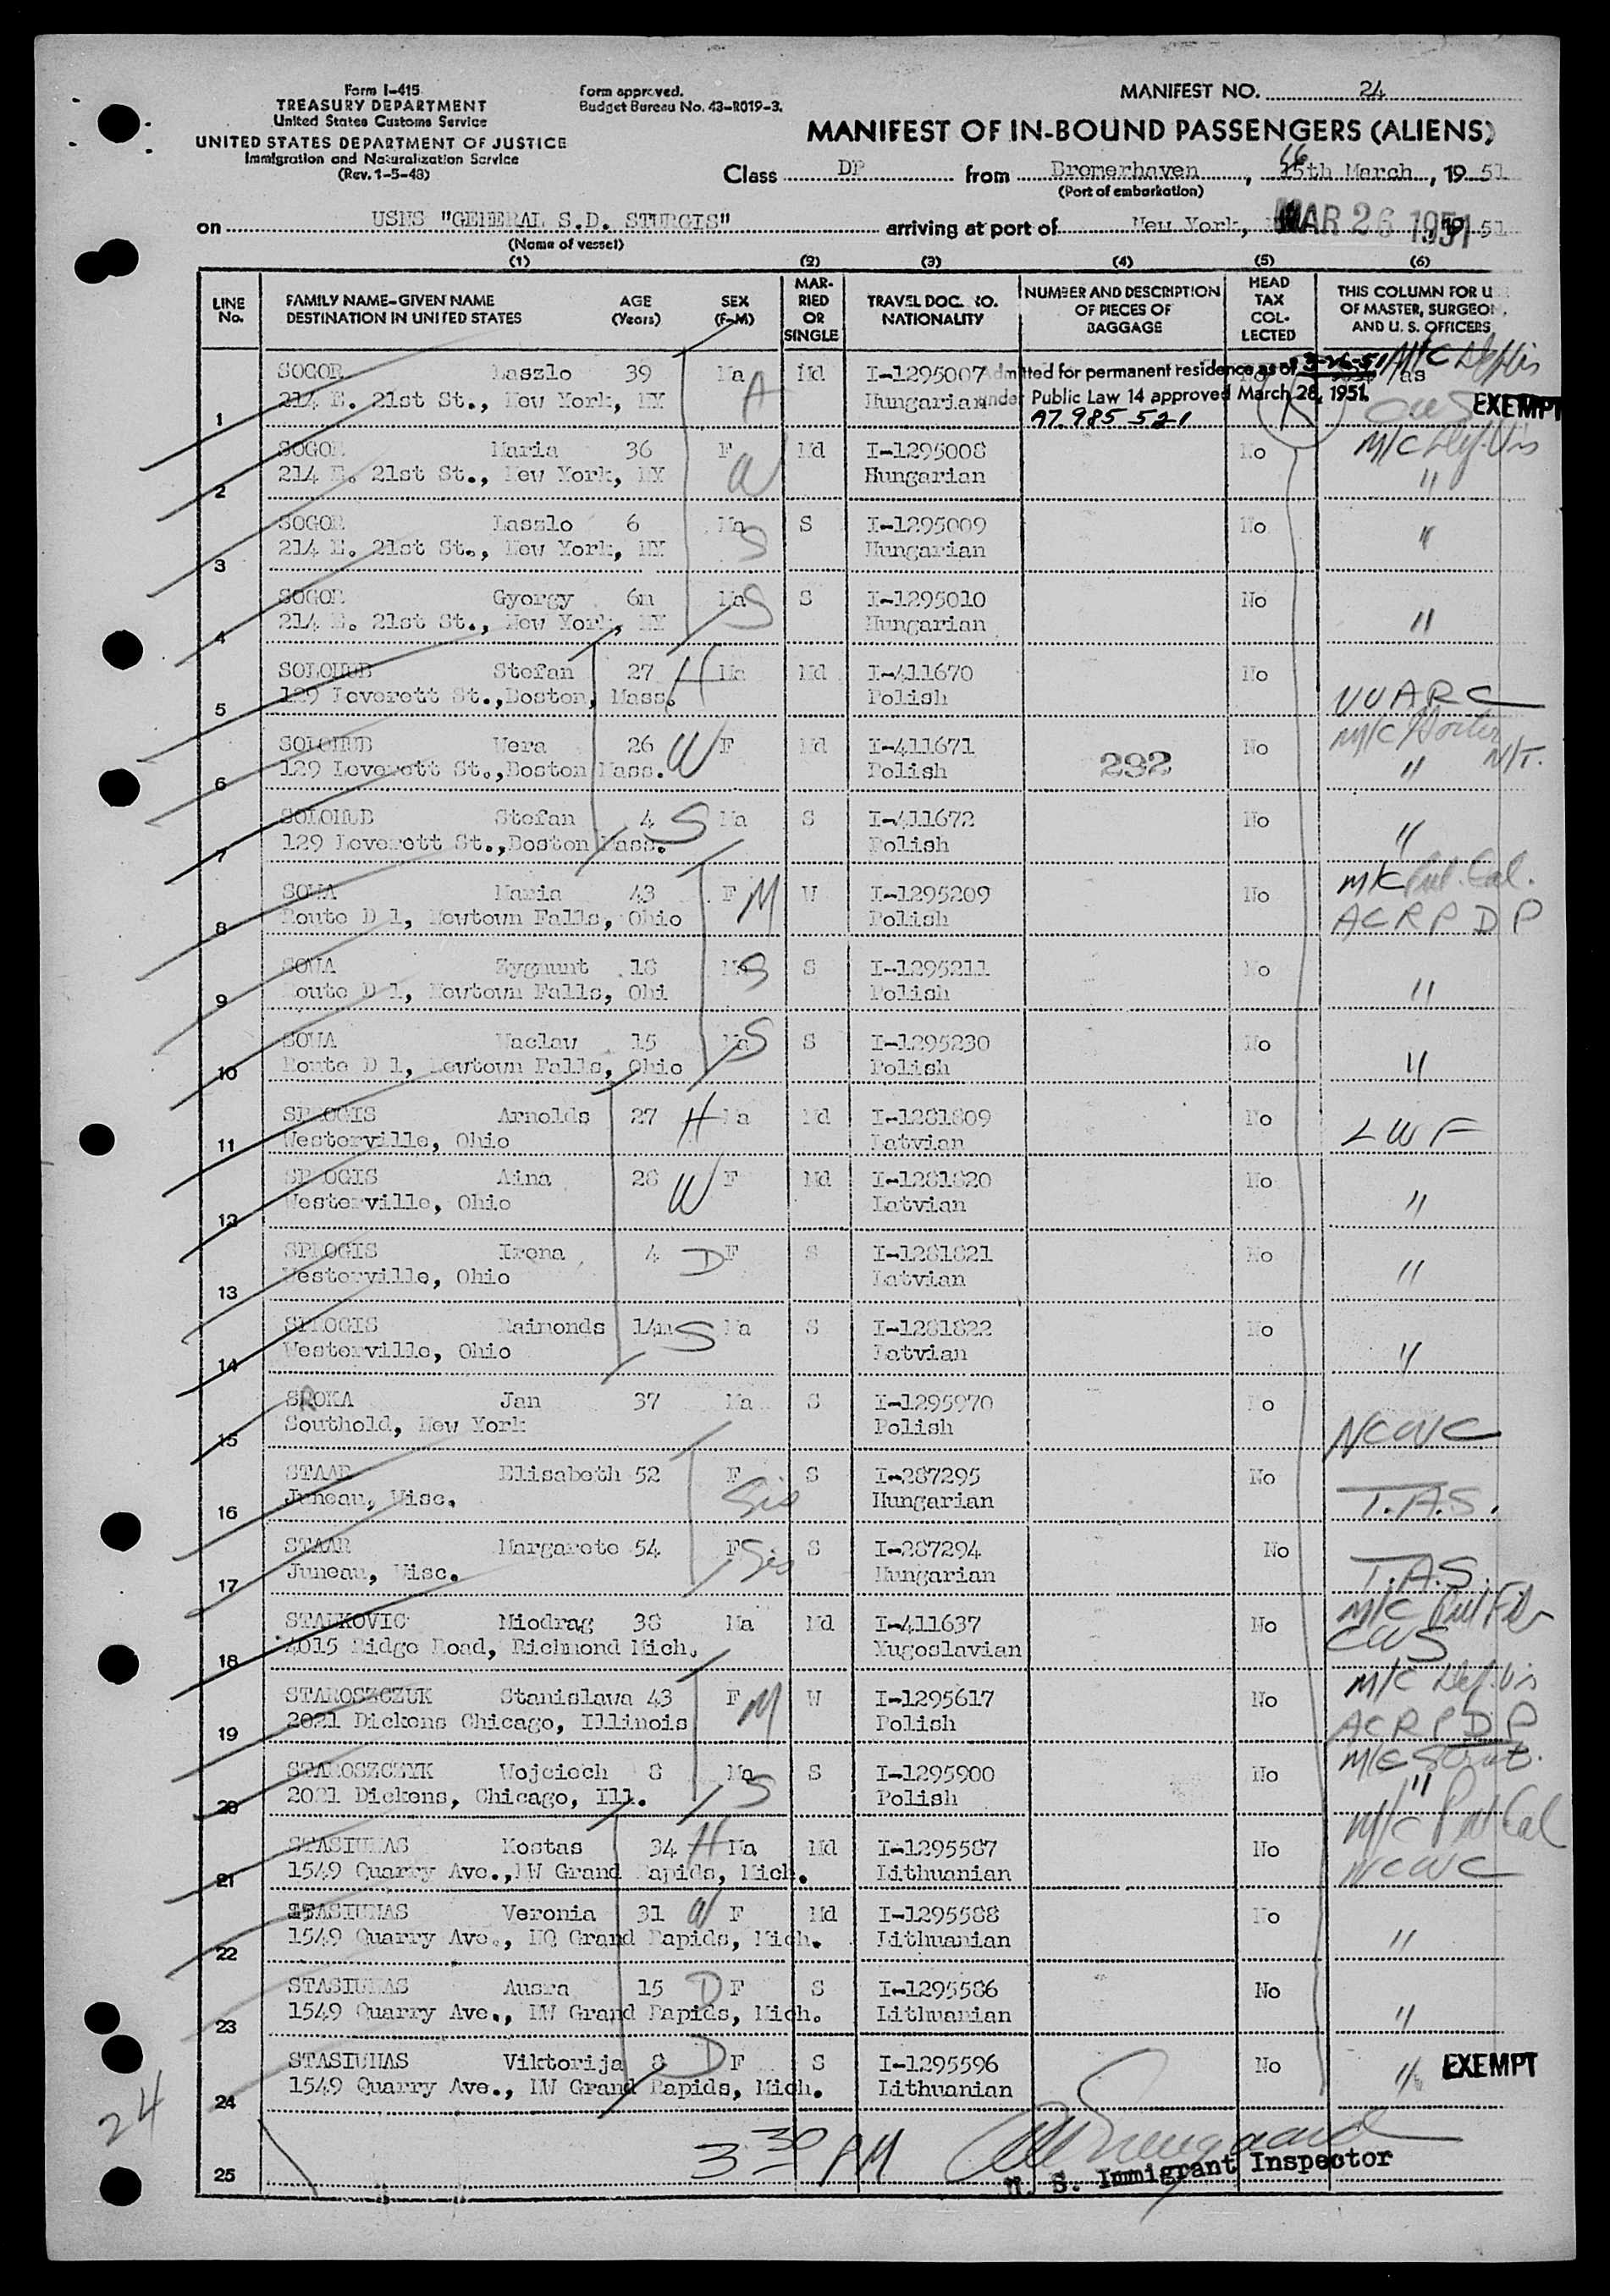 Form I-415
TREASURY DEPARTMENT
United States Customs Service
UNITED STATES DEPARTMENT OF JUSTICE
Immigration and Naturalization Service
(Rev. 1-5-48)
Form approved.
Budget Bureau No. 43-R019-3.
MANIFEST NO. 24
MANIFEST OF IN-BOUND PASSENGERS (ALIENS)
Class DP from Bremerhaven, 16 15th March, 1951
(Port of embarkation)
on USNS "GENERAL S.D. STURGIS" arriving at port of New York, MAR 26 1951, 1951
(Name of vessel)
(1) (2) (3) (4) (5) (6)
LINE No. FAMILY NAME-GIVEN NAME DESTINATION IN UNITED STATES AGE (Years) SEX (F-M) MARRIED OR SINGLE TRAVEL DOC. NO. NATIONALITY NUMBER AND DESCRIPTION OF PIECES OF BAGGAGE HEAD TAX COLLECTED THIS COLUMN FOR U OF MASTER, SURGEON, AND U. S. OFFICERS
1 SOGOR Laszlo 39 Ma Md I-1295007 Admitted for permanent residence as of 3-26-51 as M/C
214 E. 21st St., New York, NY Hungarian under Public Law 14 approved March 28, 1951. CWS EXEMPT
A7 985 521
2 SOGOR Maria 36 F W Md I-1295008 No M/C Def. Vis
214 E. 21st St., New York, NY Hungarian "
3 SOGOR Laszlo 6 Ma S S I-1295009 No "
214 E. 21st St., New York, NY Hungarian
4 SOGOR Gyorgy 6m Ma S S I-1295010 No
214 E. 21st St., New York, NY Hungarian "
5 SOLOHUB Stefan 27 H Ma Md I-411670 No
129 Leverett St.,Boston, Mass. Polish UUARC
6 SOLOHUB Wera 26 W F Md I-411671 292 No M/C N/T.
129 Leverett St.,Boston Mass. Polish "
7 SOLOHUB Stefan 4 S Ma S I-411672 No
129 Leverett St.,Boston Mass. Polish "
8 SOWA Maria 43 F M W I-1295209 No M/C Pul. Cal.
Route D 1, Newtown Falls, Ohio Polish ACRPDP
9 SOWA Zygmunt 18 Ma S S I-1295211 No
Route D 1, Newtown Falls, Ohi Polish "
10 SOWA Waclaw 15 Ma S S I-1295230 No
Route D 1, Newtown Falls, Ohio Polish "
11 SPROGIS Arnolds 27 H Ma Md I-1281809 No
Westerville, Ohio Latvian LWF
12 SPROGIS Aina 28 W F Md I-1281820 No
Westerville, Ohio Latvian "
13 SPROGIS Irena 4 D F S I-1281821 No
Westerville, Ohio Latvian "
14 SPROGIS Raimonds 14m S Ma S I-1281822 No
Westerville, Ohio Latvian "
15 SROKA Jan 37 Ma S I-1295970 No
Southold, New York Polish NCWC
16 STAAR Elisabeth 52 F Sis S I-287295 No
Juneau, Wisc. Hungarian T.A.S.
17 STAAR Margarete 54 F Sis S I-287294 No
Juneau, Wisc. Hungarian T.A.S.
18 STANKOVIC Miodrag 38 Ma Md I-411637 No M/C Pul Fib
4015 Ridge Road, Richmond Mich. Yugoslavian CWS
19 STAROSZCZUK Stanislawa 43 F M W I-1295617 No M/C Def. Vis
2021 Dickens Chicago, Illinois Polish ACRPDP
20 STAROSZCZYK Wojciech 8 Ma S S I-1295900 No M/C
2021 Dickens, Chicago, Ill. Polish "
21 STASIUNAS Kostas 34 H Ma Md I-1295587 No M/C Pul Cal
1549 Quarry Ave.,NW Grand Rapids, Mich. Lithuanian NCWC
22 STASIUNAS Veronia 31 W F Md I-1295588 No
1549 Quarry Ave., NQ Grand Rapids, Mich. Lithuanian "
23 STASIUNAS Ausra 15 D F S I-1295586 No
1549 Quarry Ave., NW Grand Rapids, Mich. Lithuanian "
24 STASIUNAS Viktorija 8 D F S I-1295596 No
1549 Quarry Ave., NW Grand Rapids, Mich. Lithuanian " EXEMPT
24
25 3 30 PM
U. S. Immigrant Inspector